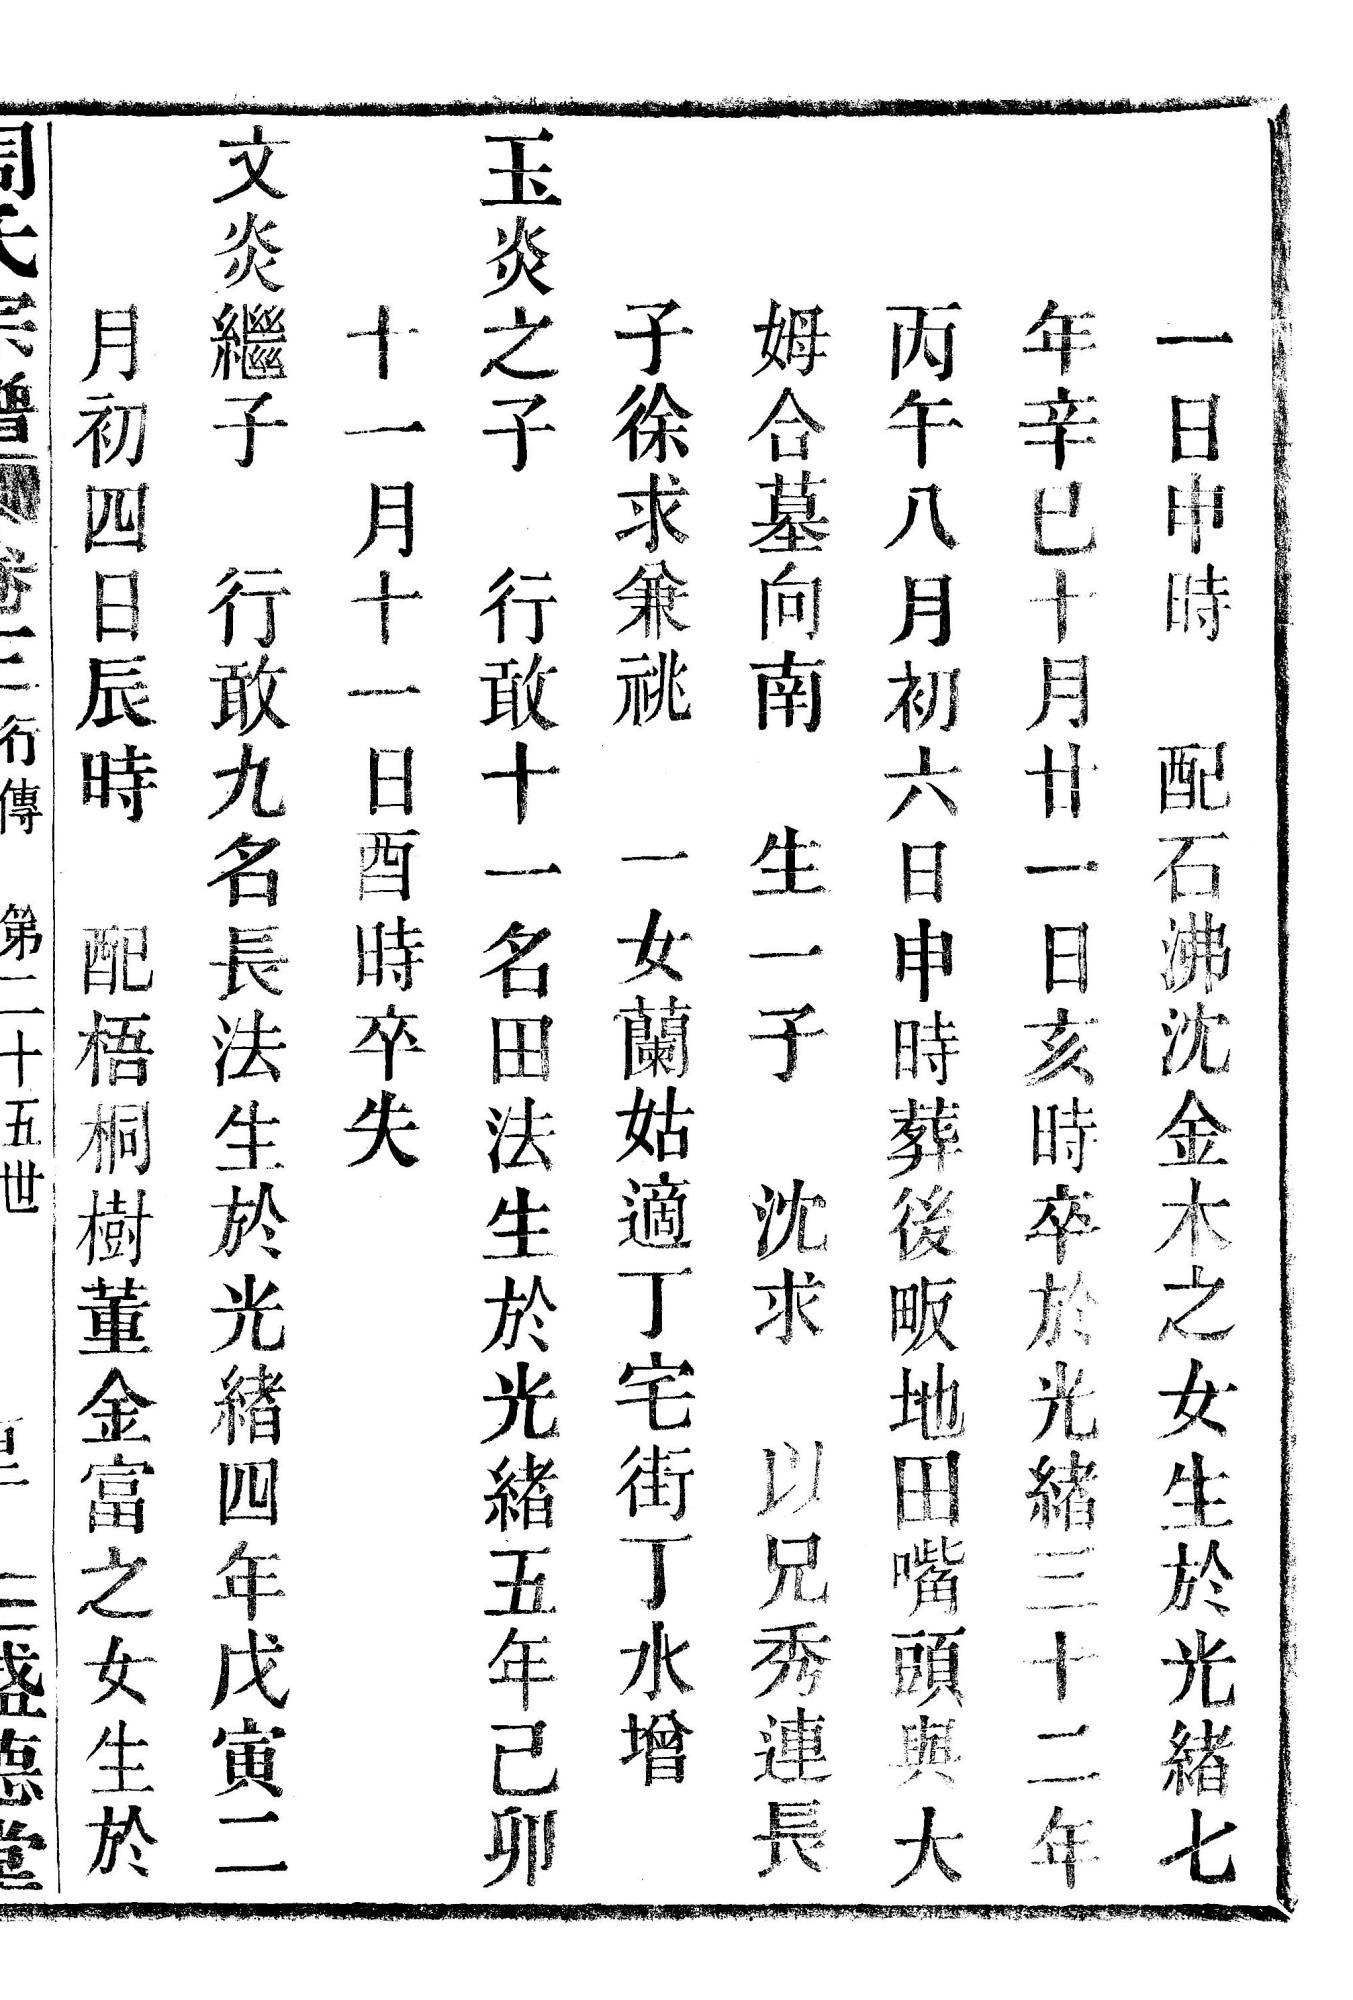 一日申時　配石沸沈金木之女生於光緒七
年辛巳十月廿一日亥時卒於光緒三十二年
丙午八月初六日申時葬後畈地田嘴頭與大
姆合墓向南　生一子　沈求　以兄秀連長
子徐求兼祧　一女蘭姑適丁宅街丁水增
玉炎之子　行敢十一名田法生於光緒五年己卯
十一月十一日酉時卒失
文炎繼子　行敢九名長法生於光緒四年戊寅二
月初四日辰時　配梧桐樹董金富之女生於
周氏宗譜　卷二　行傳　第二十五世　三盛德堂